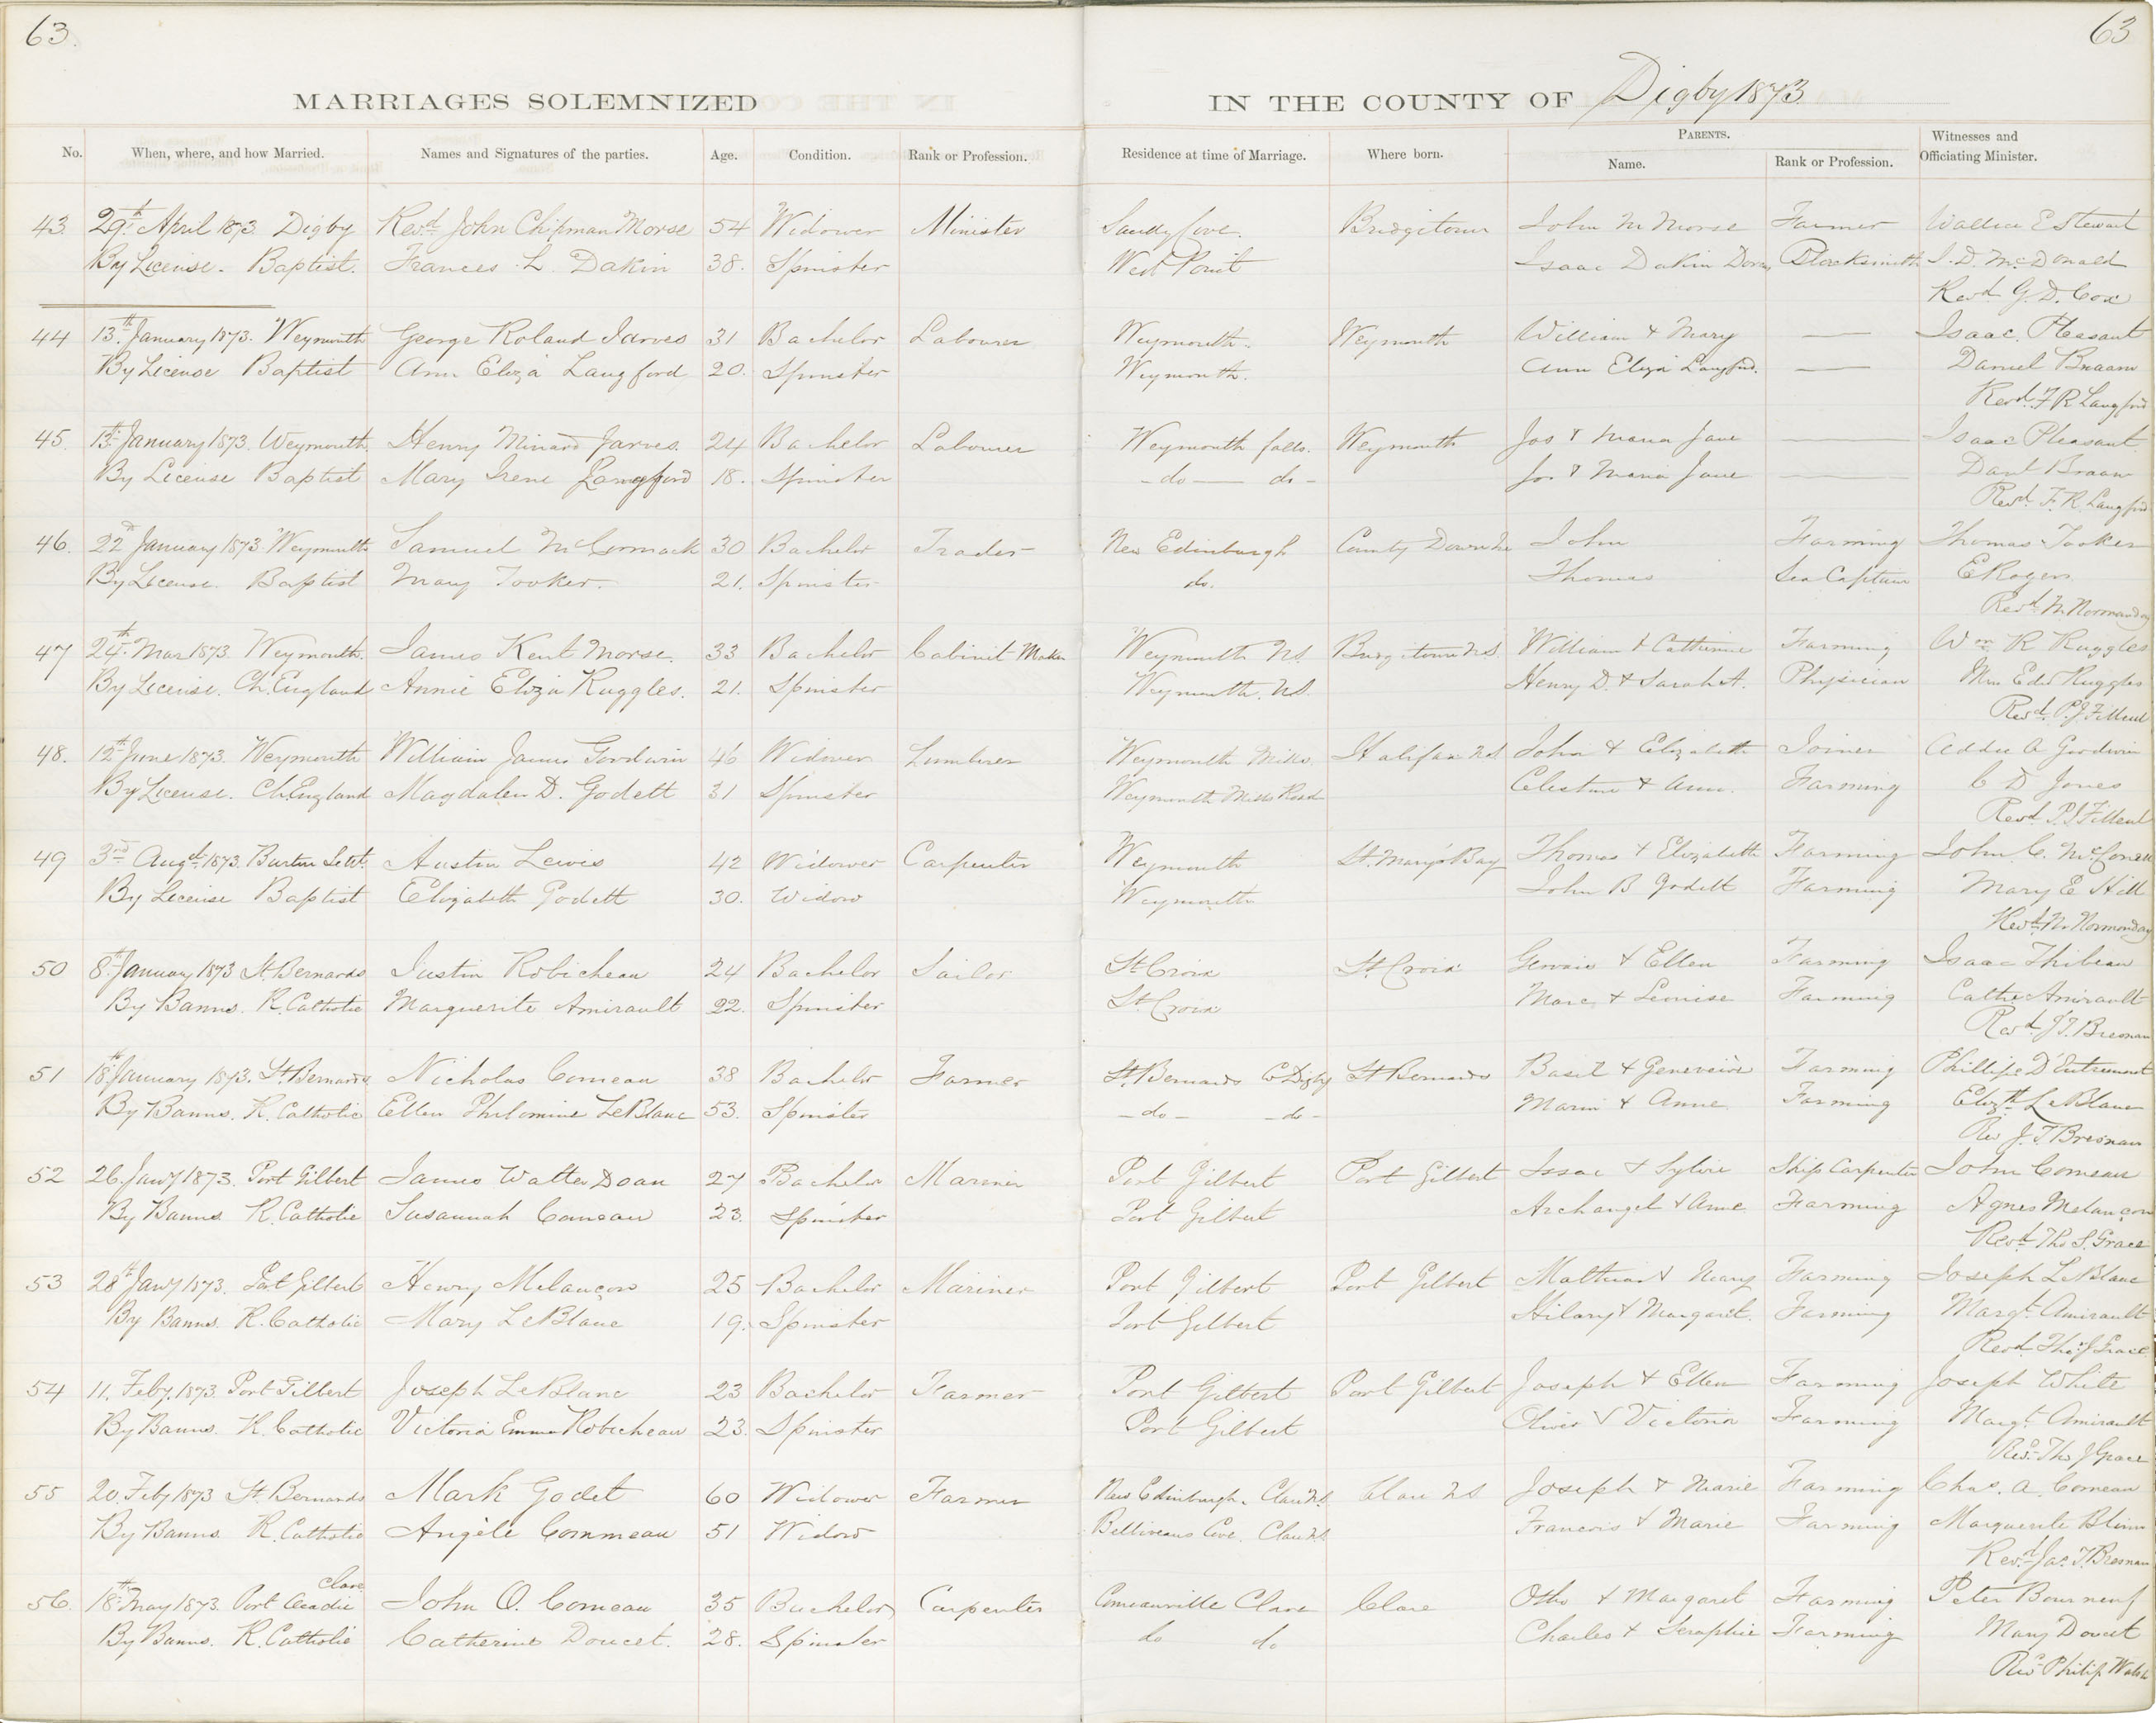 63.
63
MARRIAGES SOLEMNIZED
IN THE COUNTY OF Digby 1873
No. When, where, and how Married. Names and Signatures of the parties. Age. Condition. Rank or Profession. Residence at time of Marriage. Where born. PARENTS. Name. Rank or Profession. Witnesses and Officiating Minister.
43. 29th April 1873. Digby Revd. John Chipman Morse 54 Widower Minister Sandy Cove. Bridgetown John M Morse Farmer Wallace E Stewart
By License. Baptist. Frances L. Dakin 38. Spinster West Point Isaac Dakin Blacksmith J. D. McDonald
Revd G. D. Cox
44 13th January 1873. Weymouth George Roland Jarves 31 Bachelor Labourer Weymouth. Weymouth William & Mary — Isaac Pleasant
By License Baptist Ann Eliza Langford 20. Spinster Weymouth. Ann Eliza Langford. — Daniel
Revd. F R Langford
45. 13th January 1873. Weymouth. Henry Minard Jarves. 24 Bachelor Labourer Weymouth falls. Weymouth Jos & Maria Jane — Isaac Pleasant
By License Baptist Mary Irene Langford 18. Spinster - do — do - Jos. & Maria Jane — Danl
Revd. F. R. Langford
46. 22d January 1873. Weymouth Samuel McCormack 30 Bachelor Trader New Edinburgh County Down John Farming Thomas Tooker
By License. Baptist Mary Tooker. 21. Spinster do. Thomas Sea Captain E Rogers
Revd. N. Normanday
47 24th Mar 1873. Weymouth. James Kent Morse. 33 Bachelor Cabinet Maker Weymouth N.S. Bridgetown N.S. William & Catherine Farming Wm R Ruggles
By License. Ch. England Annie Eliza Ruggles. 21. Spinster Weymouth. N.S. Henry D. & Sarah A. Physician Ruggles
Revd. P. J. Filleul
48. 12th June 1873. Weymouth William James Goodwin 46 Widower Lumberer Weymouth Mills. Halifax N.S John & Elizabeth Joiner Addie A Goodwin
By License. Ch. England Magdalen D. Godett 31 Spinster Weymouth Mills Road Celestine & Ann. Farming C D Jones
Revd. P. J Filleul
49 3rd Augst. 1873. Sett. Austin Lewis 42 Widower Carpenter Weymouth St. Mary's Bay Thomas & Elizabeth Farming John C.
By License Baptist Elizabeth Godett 30. Widow Weymouth John B Godett Farming Mary E Hill
Revd. N. Normanday
50 8th January 1873 St. Bernards Justin Robicheau 24 Bachelor Sailor St. Croix St. Croix Gervais & Ellen Farming Isaac Thibeau
By Banns. R. Catholic Marguerite Amirault 22. Spinster St. Croix Marc & Leonise Farming Cathe Amirault
Revd. J. T. Bresnan
51 18th January 1873. St. Bernards Nicholas Comeau 38 Bachelor Farmer St. Bernards Co Digby St Bernards Basil & Genevieve Farming Phillipe D'Entremont
By Banns. R. Catholic Ellen Philomine LeBlanc 53. Spinster - do - - do - Marin & Anne Farming Elizth LeBlanc
Rev J. T Bresnan
52 26. Jany 1873. Port Gilbert James Walter Doan 27 Bachelor Mariner Port Gilbert Port Gilbert Issac & Sylvie Ship Carpenter John Comeau
By Banns R. Catholic Susannah Comeau 23. Spinster Port Gilbert Archangel & Anne Farming Agnes Melançon
Revd. Tho S. Grace
53 28th Jany 1873. Port Gilbert Henry Melançon 25 Bachelor Mariner Port Gilbert Port Gilbert & Mary Farming Joseph LeBlanc
By Banns. R. Catholic Mary LeBlanc 19. Spinster Port Gilbert Hilary & Margaret. Farming Margt. Amirault
Revd. Thos J Grace
54 11. Feby. 1873. Port Gilbert Joseph LeBlanc 23 Bachelor Farmer Port Gilbert Port Gilbert Joseph & Ellen Farming Joseph White
By Banns. R. Catholic Victoria Emma Robicheau 23. Spinster Port Gilbert Oliver & Victoria Farming Margt. Amirault
Rev. Tho J Grace
55 20. Feby 1873 St. Bernards Mark Godet 60 Widower Farmer New Edinburgh. Clare N.S. Clare N S Joseph & Marie Farming Chas. A. Comeau
By Banns R. Catholic Angèle Commeau 51 Widow Belliveaus Cove. Clare N.S. Francois & Marie Farming Marguerite Blinn
Revd. Jas. T. Bresnan
Clare
56. 18th May 1873. Port Acadie John O. Comeau 35 Bachelor Carpenter Comeauville Clare Clare Otho & Margaret Farming Peter Bourneuf
By Banns. R. Catholic Catherine Doucet. 28. Spinster do do Charles & Seraphie Farming Mary Doucet
Rev. Philip Walsh